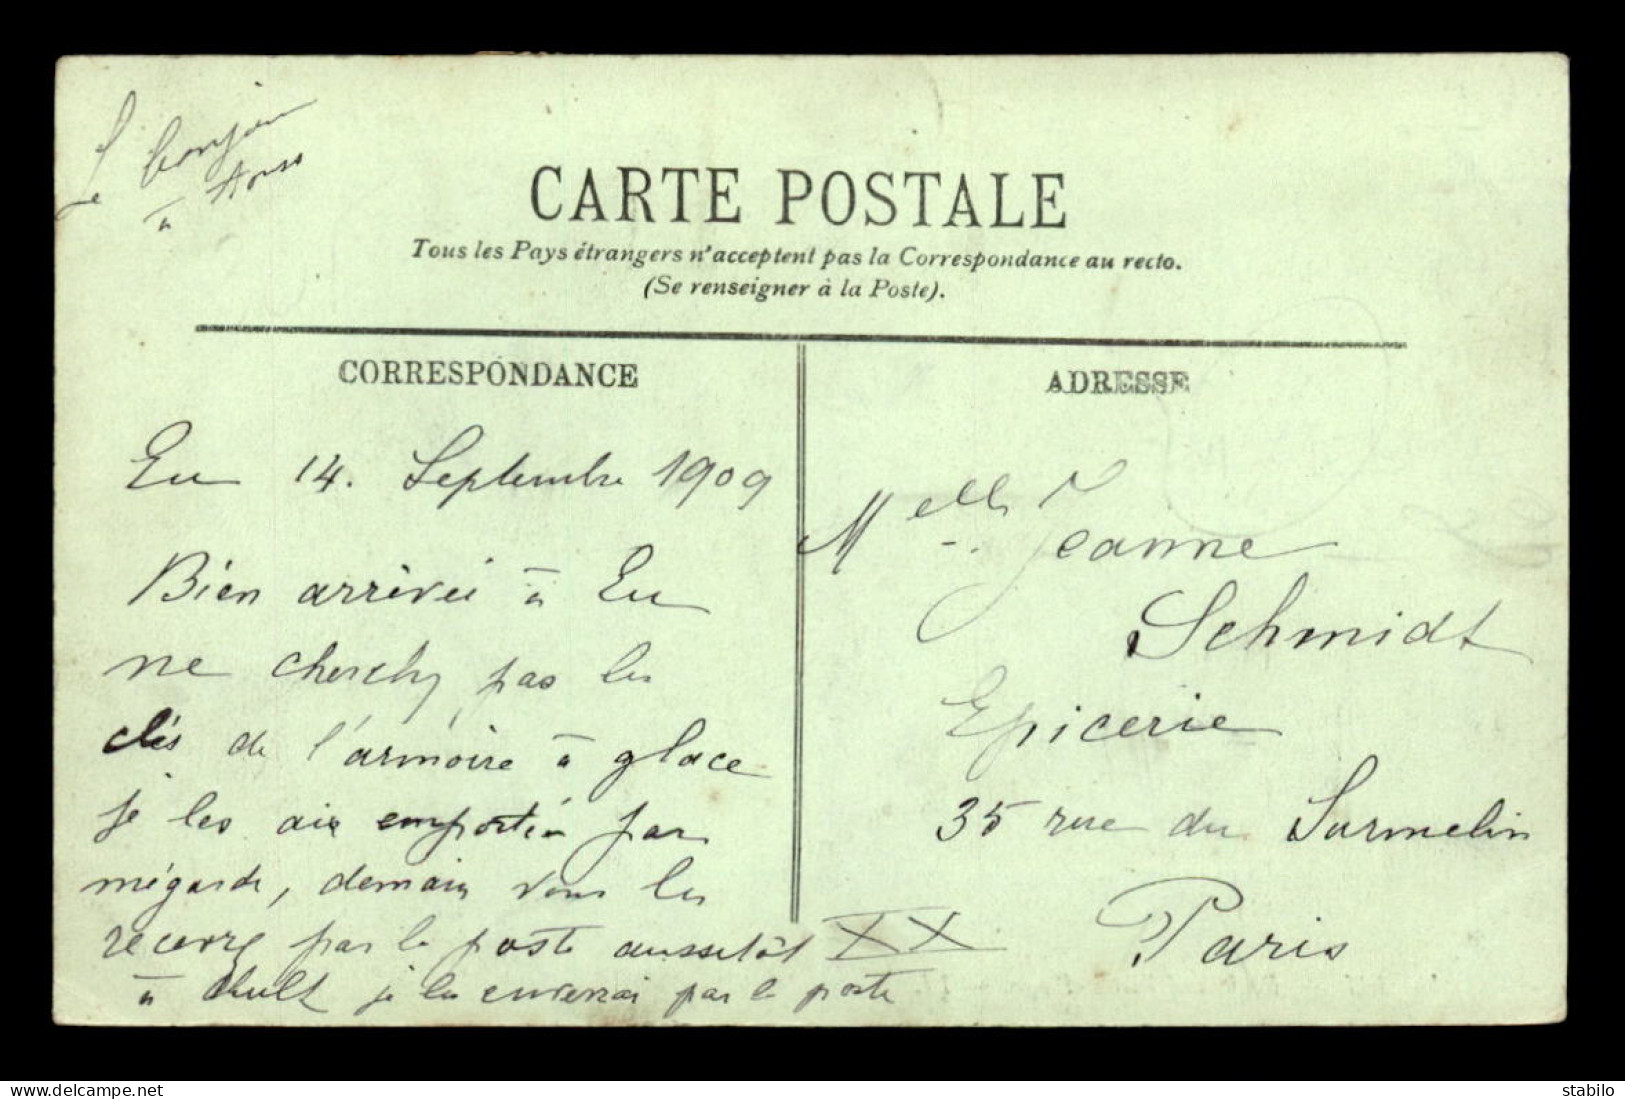 Le bonjour
à tous
CARTE POSTALE
Tous les Pays étrangers n'acceptent pas la Correspondance au recto.
(Se renseigner à la Poste).
CORRESPONDANCE
ADRESSE
Eu 14. Septembre 1909
Bien arrivée à Eu
ne cherchez pas les
clés de l'armoire à glace
je les ais emportés par
mégarde, demain vous les
recevrez par la poste aussitôt
à Ault je les enverrai par la poste
Melle Jeanne
Schmidt
Epicerie
35 rue du Surmelin
Paris
XX
www.delcampe.net
stabilo